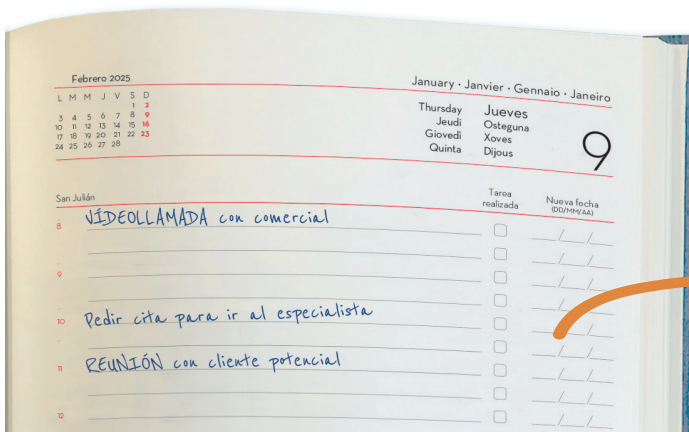 Febrero 2025
L M M J V S D
1 2
3 4 5 6 7 8 9
10 11 12 13 14 15 16
17 18 19 20 21 22 23
24 25 26 27 28
January · Janvier · Gennaio · Janeiro
Thursday Jueves
Jeudi Osteguna
Giovedì Xoves
Quinta Dijous
9
San Julián
Tarea realizada
Nueva fecha
(DD/MM/AA)
8 VÍDEOLLAMADA con comercial
9
10 Pedir cita para ir al especialista
11 REUNIÓN con cliente potencial
12